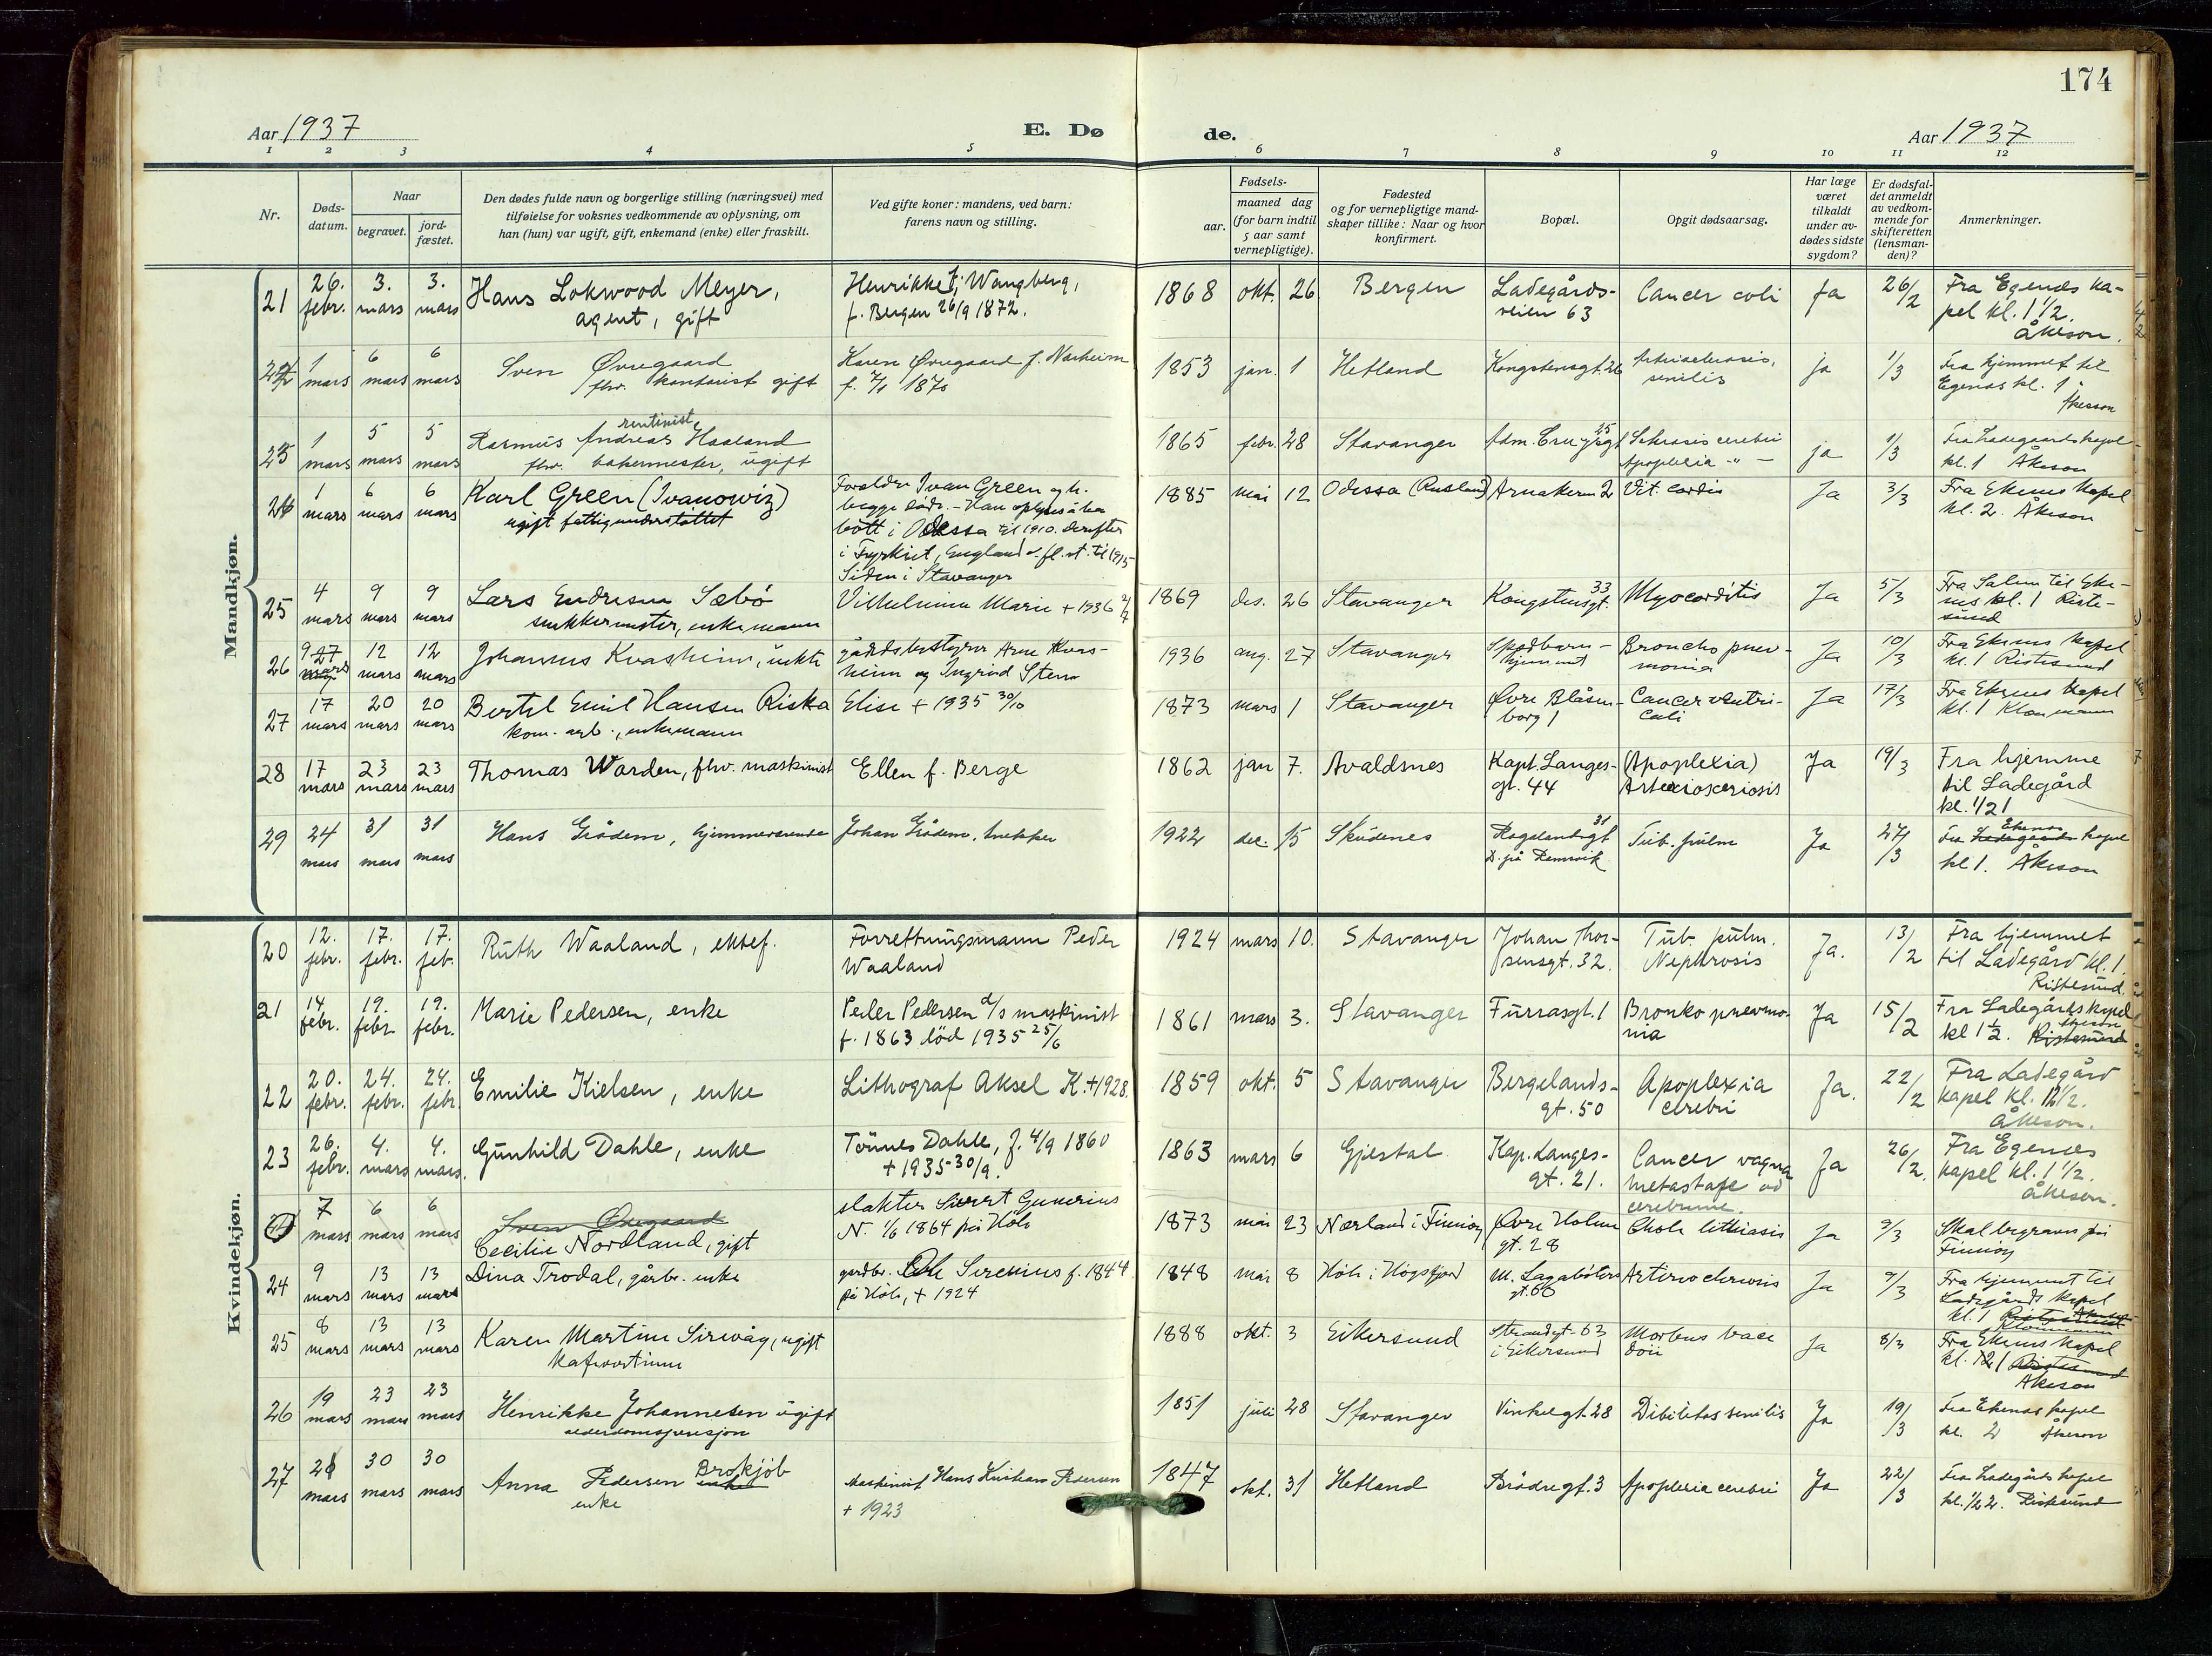 174
Aar 1937
E. Dø
de.
Aar 1937
1 2 3 4 5 6 7 8 9 10 11 12
Nr.
Døds-
datum.
Naar
begravet.
jord-
fæstet.
Den dødes fulde navn og borgerlige stilling (næringsvei) med
tilføielse for voksnes vedkommende av oplysning, om
han (hun) var ugift, gift, enkemand (enke) eller fraskilt.
Ved gifte koner: mandens, ved barn:
farens navn og stilling.
Fødsels-
aar.
maaned dag
(for barn indtil
5 aar samt
vernepligtige).
Fødested
og for vernepligtige mand-
skaper tillike: Naar og hvor
konfirmert.
Bopæl.
Opgit dødsaarsag.
Har læge
været
tilkaldt
under av-
dødes sidste
sygdom?
Er dødsfal-
det anmeldt
av vedkom-
mende for
skifteretten
(lensman-
den)?
Anmerkninger.
Mandkjøn.
21 26. febr. 3. mars 3. mars Hans Lokwood Meyer,
agent, gift
Henrikke f. Wangberg,
f. Bergen 26/9 1872.
1868 okt. 26. Bergen
Ladegårds-
veien 63
Cancer coli Ja 26/2
Fra Egenes ka-
pel kl. 1 1/2.
Åkeson.
22 1 mars 6 mars 6 mars Sven Øvregaard
fhv. kontorist gift
Karen Øvregaard f. Nærheim
f. 7/1 1870
1853 jan. 1 Hetland Kongstensgt. 26
Arteriosclerosis,
senilis
ja 1/3
Fra hjemmet til
Egenes kl. 1
Åkesson
23 1 mars 5 mars 5 mars rentenist
Rasmus Andreas Haaland
fhv. bakermester, ugift
1865 febr. 28 Stavanger Adm. Cruysgt 25
Sclerosis cerebri
Apoplexia -"-
ja 1/3
Fra Ladegaards kapel
kl. 1 Åkeson
24 1 mars 6 mars 6 mars Karl Green (Ivanowiz)
ugift fattigunderstøttet
Foreldre Ivan Green og h.
begge døde. - Han oplyses å ha
bott i Odessa til 1910. derefter
i Tyrkiet, England o. fl. st. til 1915
Siden i Stavanger
1885 mai 12 Odessa (Rusland) 2 Vit. cordis Ja 3/3
Fra Ekenes kapel
kl. 2. Åkeson
25 4 mars 9 mars 9 mars Lars Endresen Sæbö
snekkermester, enkemann
Vilhelmine Marie + 1936 2/7
1869 des. 26 Stavanger Kongstensgt. 33 Myocarditis Ja 5/3
Fra Salem til Eke-
nes kl. 1 Riste-
sund
26 9 mars 12 mars 12 mars Johannes Kvasheim, uekte
gårdsbestyrer Arne Kvas-
heim og Ingrid Stene
1936 aug. 27 Stavanger
Spedbarn-
hjemmet
Broncho pnev-
monia
Ja 10/3
Fra Ekenes kapel
kl. 1 Ristesund
27 17 mars 20 mars 20 mars Bertel Emil Hansen Riska
kom. arb., enkemann
Elise + 1935 30/10
1873 mars 1 Stavanger
Øvre Blåsen-
borg 1
Cancer ventri-
culi
Ja 17/3
Fra Ekenes kapel
kl. 1 Klommann
28 17 mars 23 mars 23 mars Thomas Warden, fhv. maskinist
Ellen f. Berge
1862 jan 7. Avaldsnes
Kapt. Langes-
gt. 44
(Apoplexia)
Arteriosceriosis
Ja 19/3
Fra hjemme
til Ladegård
kl. 1/2 1
29 24 mars 31 mars 31 mars Hans Grådem, hjemmeværende
Johan Grådem, snekker
1922 des. 15 Skudenes
Rogalandsgt 31
D. på Remvik
Tub. pulm Ja 27/3
Fra Ladegaards Ekenes kapel
kl 1. Åkeson
Kvindekjøn.
20 12. febr. 17. febr. 17. feb. Ruth Waaland, ektef.
Forrettningsmann Peder
Waaland
1924 mars 10. Stavanger
Johan Thor-
sensgt. 32.
Tub. pulm.
Nephrosis
Ja. 13/2
Fra hjemmet
til Ladegård kl. 1.
Ristesund.
21 14 febr. 19. febr. 19. febr. Marie Pedersen, enke
Peder Pedersen d/s maskinist
f. 1863 död 1935 25/6
1861 mars 3. Stavanger Furrasgt. 1
Bronko pnevmo-
nia
Ja 15/2
Fra Ladegårdskapel
kl 1 1/2. Ristesund Åkeson
22 20. febr. 24. febr. 24. febr Emilie Kielsen, enke
Lithograf Aksel K. +1928.
1859 okt. 5 Stavanger
Bergelands-
gt. 50
Apoplexia
cerebri
Ja. 22/2
Fra Ladegård
kapel kl. 12 1/2.
Åkeson.
23 26. febr. 4. mars 4. mars. Gunhild Dahle, enke
Tönnes Dahle, f. 4/9 1860
+ 1935 30/9.
1863 mars 6 Gjestal
Kap. Langes-
gt. 21.
Cancer vagina
metastase ad
cerebrum.
Ja 26/2.
Fra Egenes
kapel kl. 1 1/2.
Åkeson.
7 mars 6 mars 6 mars Sven Øvregaard
Cecilie Nordland, gift
slakter Sivert Gunerius
N. 1/6 1864 på Höle
1873 mai 23 Nærland i Finnöy
Øvre Holme
gt. 28
Chole lithiasis Ja 9/3
Skal begraves på
Finnöy
24 9 mars 13 mars 13 mars Dina Trodal, gårbr. enke
gardbr. Ole Serenius f. 1844
på Höle, + 1924
1848 mai 8 Höle i Högsfjord
M. Lagabøters
gt. 66
Arteriosclerosis Ja 9/3
Fra hjemmet til
Ladegårds kapel
kl. 1
Klommann
25 8 mars 13 mars 13 mars Karen Martine Sirevåg, ugift
kafevertinne
1888 okt. 3 Eikersund
Strandgt. 63
i Eikersund
Morbus base
dovii
Ja 8/3
Fra Ekenes kapel
kl. 12 1 Ristesund
Åkeson
26 19 mars 23 mars 23 mars Henrikke Johannesen ugift
alderdomspensjon
1851 juli 28 Stavanger Vinkelgt. 28 Dibilitas senilis Ja 19/3
Fra Ekenes kapel
kl. 2 Åkeson
27 mars 30 mars 30 mars Anna Pedersen Brokjöb
enke
Maskinist Hans Kristian Pedersen
+ 1923
1847 okt. 31 Hetland Brödregt. 3 Apoplexia cerebri Ja 22/3
Fra Ladegårds kapel
kl. 1/2 2. Ristesund